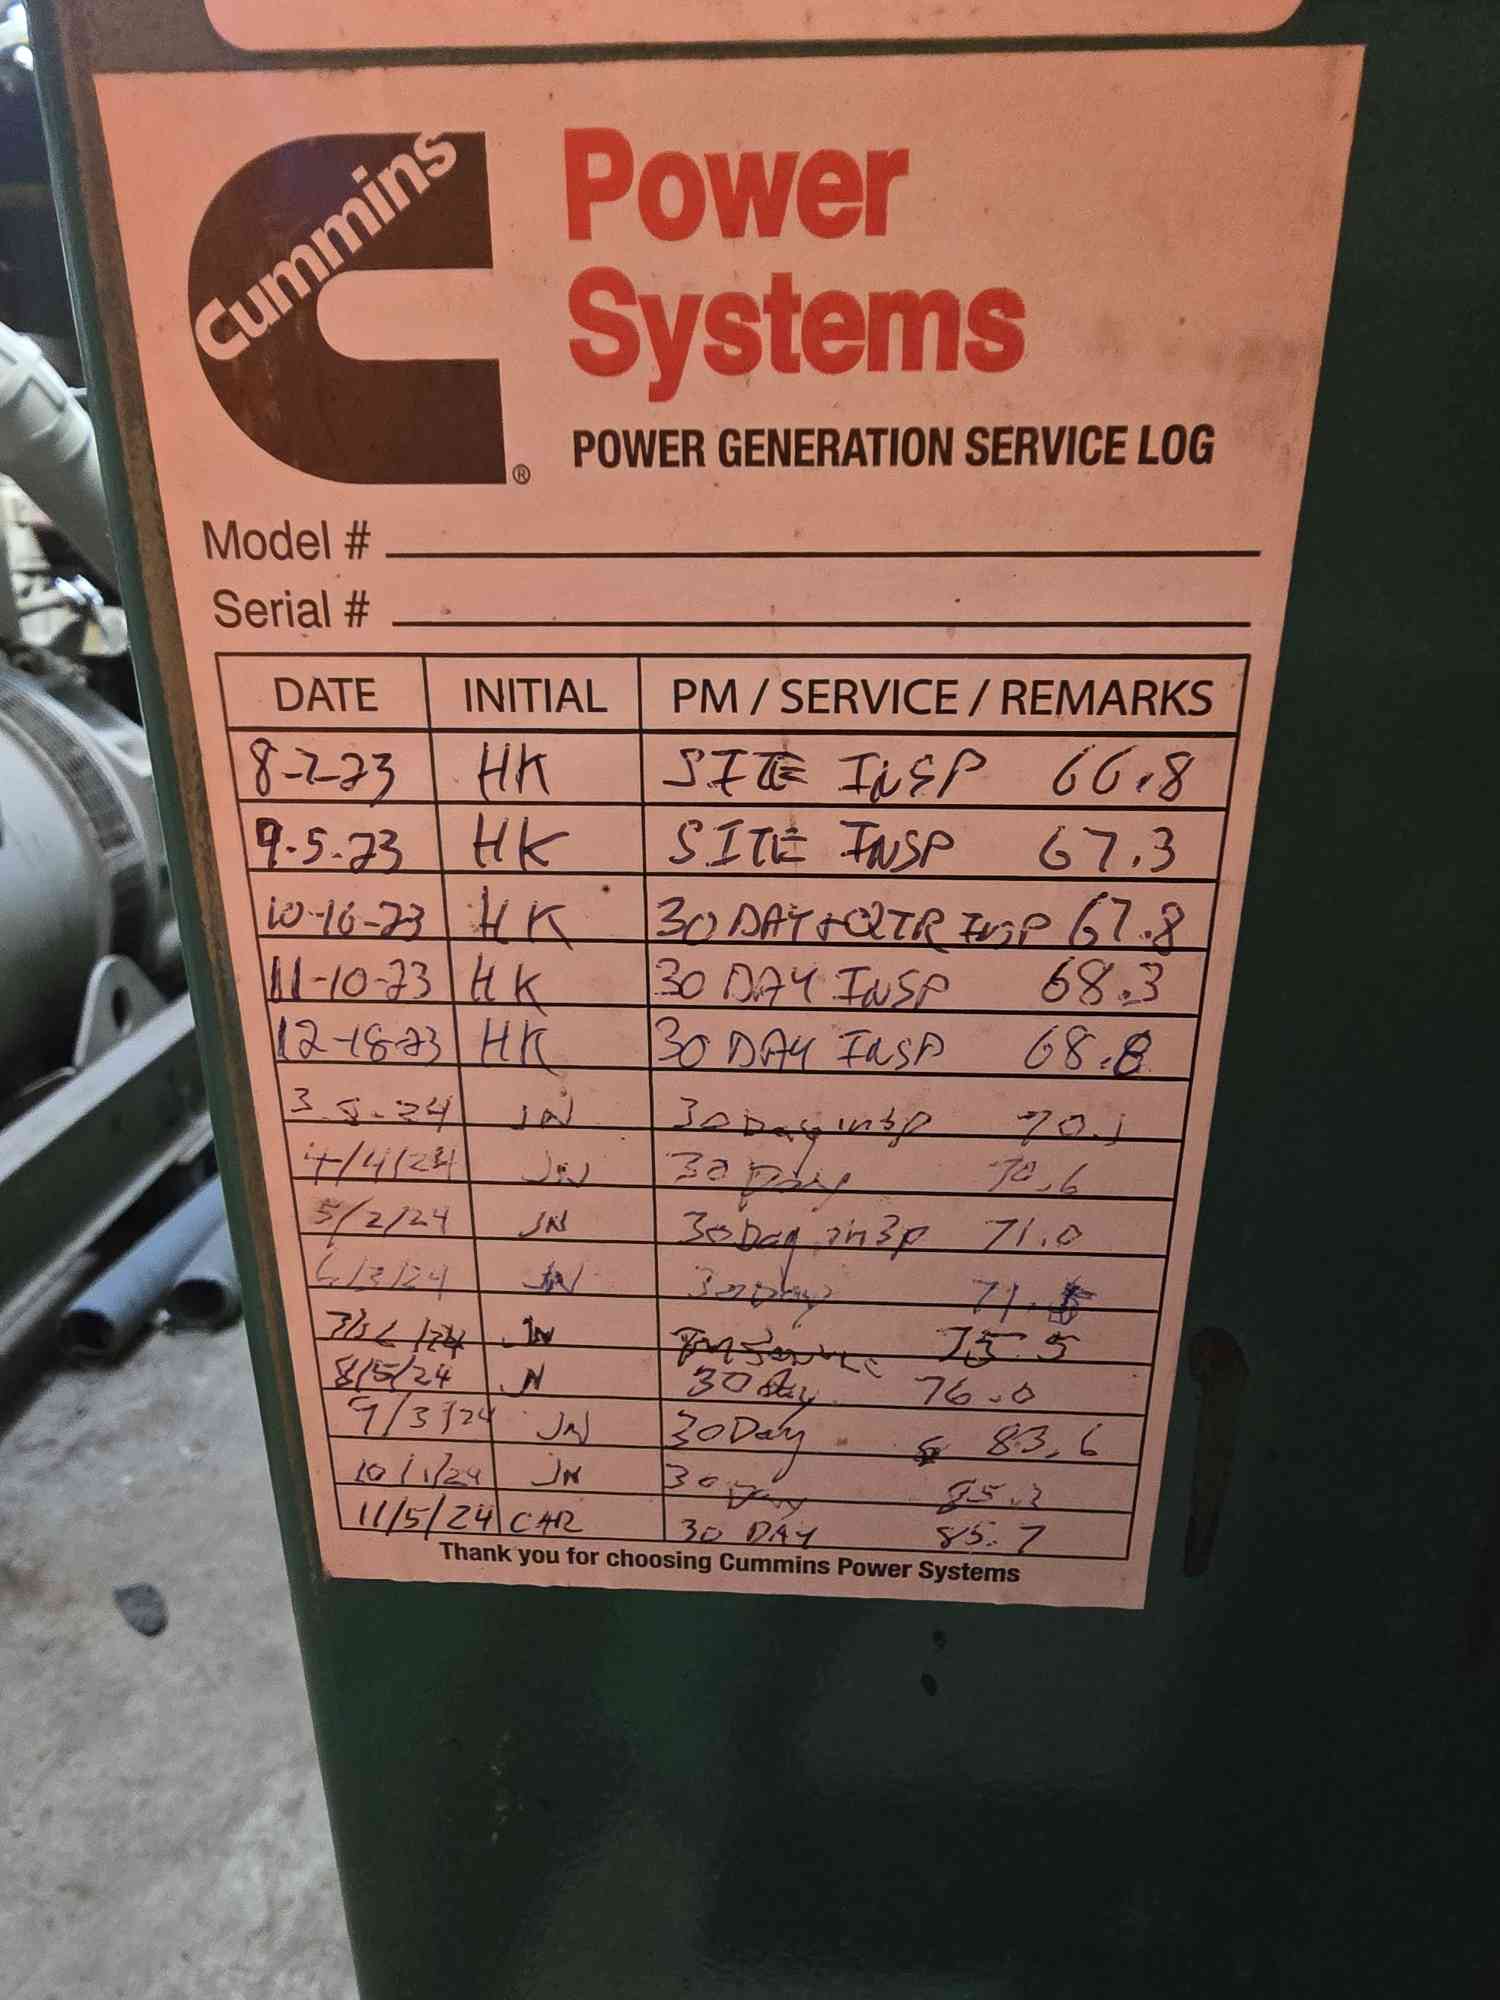 Cummins ®
Power
Systems
POWER GENERATION SERVICE LOG
Model #
Serial #
DATE INITIAL PM / SERVICE / REMARKS
8-2-23 HK SITE INSP 66.8
9-5-23 HK SITE INSP 67.3
10-16-23 HK 30 DAY+QTR INSP 67.8
11-10-23 HK 30 DAY INSP 68.3
12-18-23 HK 30 DAY INSP 68.8
3.5.24 JN 30 Day insp 70.1
4/4/24 JN 30 Day 70.6
5/2/24 JN 30 Day insp 71.0
6/3/24 JN 30 Day
JN PM Service 75.5
8/5/24 JN 30 Day 76.0
9/3/24 JN 30 Day 83.6
10/1/24 JN 30 Day 85.2
11/5/24 CHR 30 DAY 85.7
Thank you for choosing Cummins Power Systems